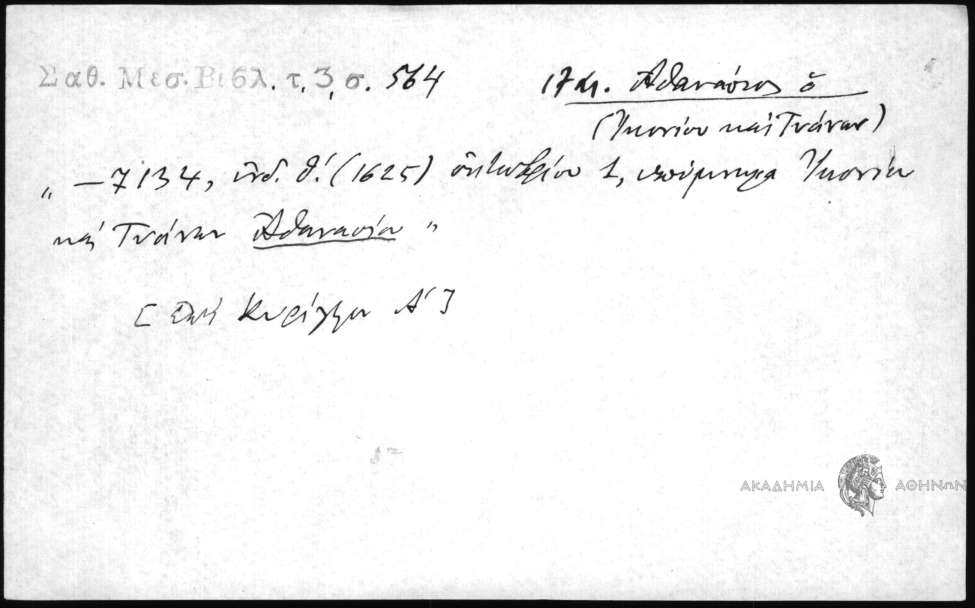 Σαθ. Μεσ. Βιβλ. τ. 3, σ. 564
17 αι. Ἀθανάσιος ὁ
(Ἰκονίου καὶ Τυάνων)
" — 7134, ἰνδ. θ΄. (1625) ὀκτωβρίου 1, ὑπόμνημα Ἰκονίου
καὶ Τυάνων Ἀθανασίου "
[ ἐπὶ Κυρίλλου Α΄ ]
ΑΚΑΔΗΜΙΑ ΑΘΗΝΩΝ